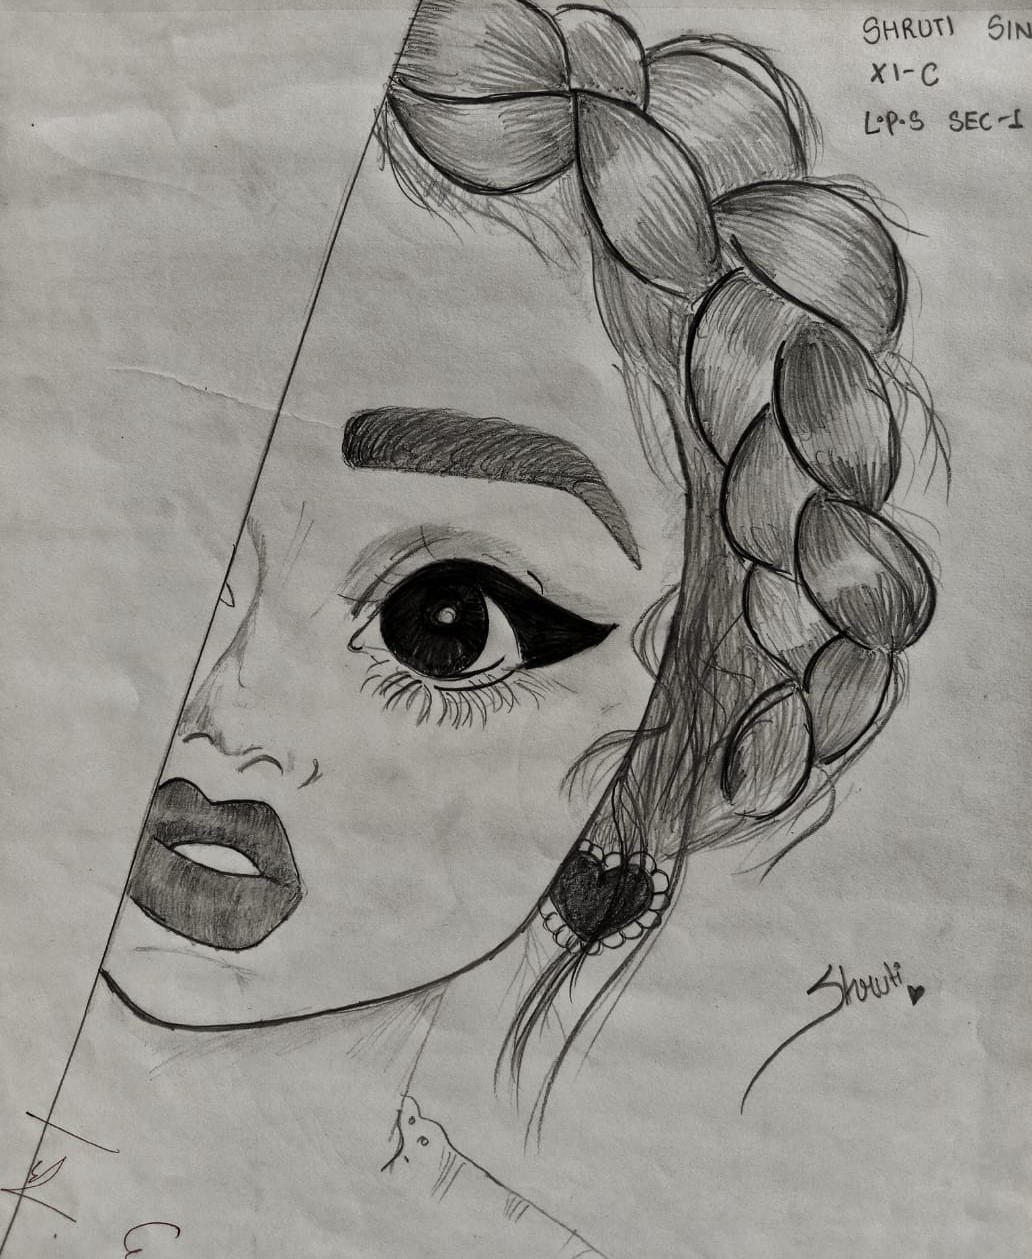 SHRUTI SIN
XI-C
L.P.S SEC-I
Shruti